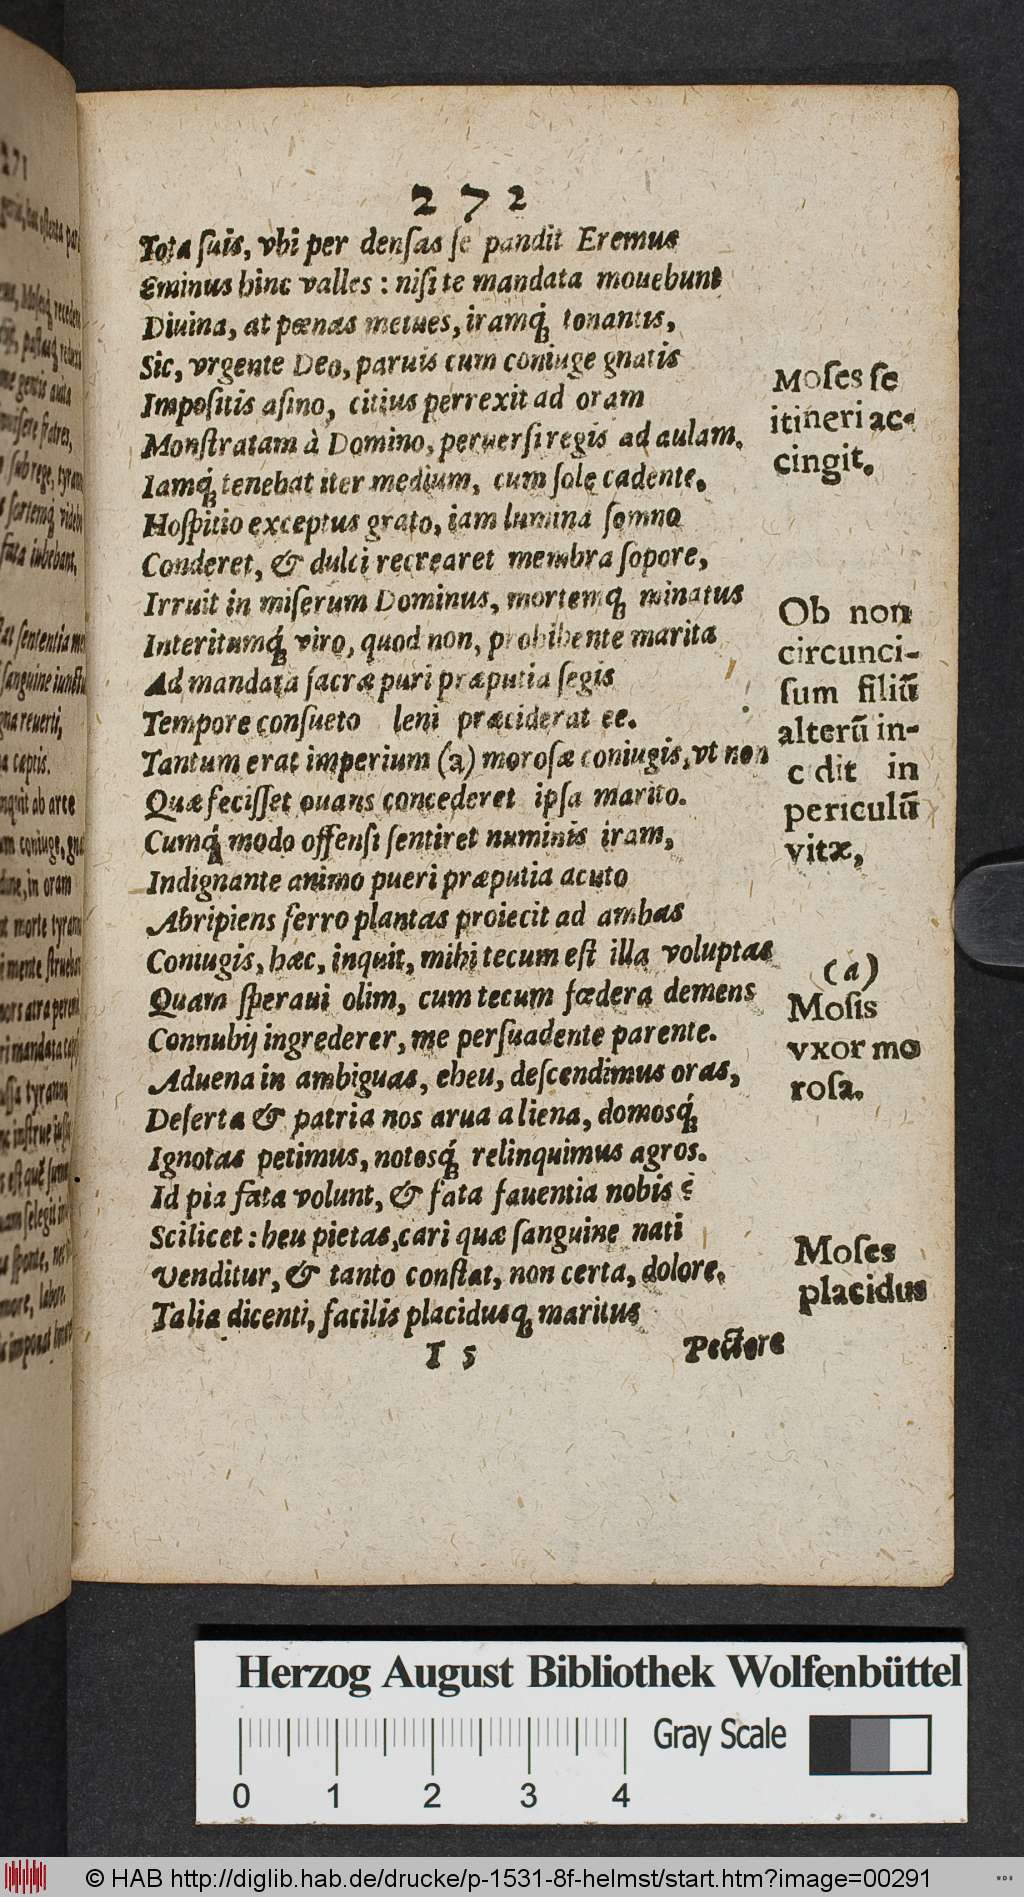 272
Tota ſuis, vbi per denſas ſe pandit Eremus
Eminus hinc valles : niſi te mandata mouebunt
Diuina, at pœnas metues, iramq́; tonantis,
Sic, vrgente Deo, paruis cum coniuge gnatis
Impoſitis aſino, citius perrexit ad oram
Monſtratam à Domino, peruerſi regis ad aulam.
Iamq́; tenebat iter medium, cum ſole cadente.
Hoſpitio exceptus grato, iam lumina ſomno
Conderet, & dulci recrearet membra ſopore,
Irruit in miſerum Dominus, mortemq; minatus
Interitumq́; viro, quod non, prohibente marita
Ad mandata ſacræ puri præputia ſegis
Tempore conſueto leni præciderat ee.
Tantum erat imperium (a) moroſæ coniugis, vt non
Quæ feciſſet ouans concederet ipſa marito.
Cumq́; modo offenſi ſentiret numinis iram,
Indignante animo pueri præputia acuto
Abripiens ferro plantas proiecit ad ambas
Coniugis, hæc, inquit, mihi tecum eſt illa voluptas
Quam ſperaui olim, cum tecum fœdera demens
Connubij ingrederer, me perſuadente parente.
Aduena in ambiguas, eheu, deſcendimus oras,
Deſerta & patria nos arua aliena, domosq́;
Ignotas petimus, notosq́; relinquimus agros.
Id pia fata volunt, & fata fauentia nobis ?
Scilicet : heu pietas, cari quæ ſanguine nati
Venditur, & tanto conſtat, non certa, dolore.
Talia dicenti, facilis placidusq; maritus
I 5
Pectore
Moſes ſe
itineri ac-
cingit.
Ob non
circunci-
ſum filiũ
alterũ in-
c dit in
periculũ
vitæ,
(a)
Moſis
vxor mo
roſa.
Moſes
placidus
Herzog August Bibliothek Wolfenbüttel
Gray Scale
0 1 2 3 4
© HAB http://diglib.hab.de/drucke/p-1531-8f-helmst/start.htm?image=00291